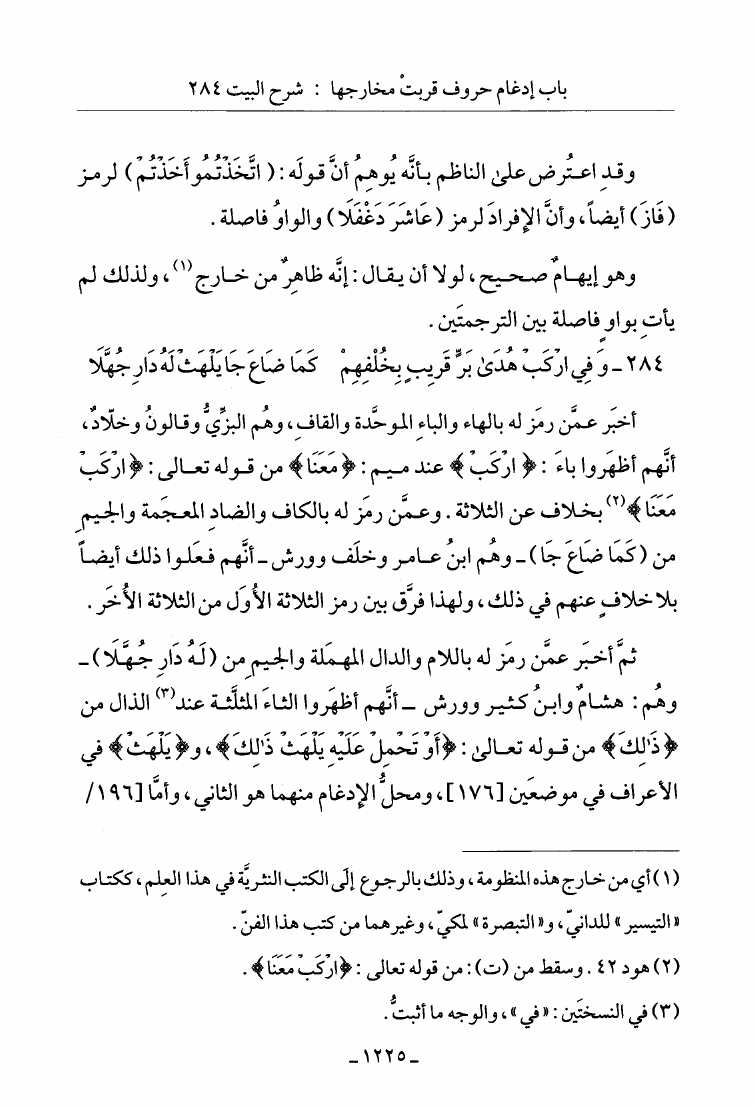 باب إدغام حروف قربتْ مخارجها : شرح البيت ٢٨٤
وقدِ اعتُرض على الناظم بأنَّه يُوهِمُ أنَّ قولَه : ( اتَّخَذْتُمُو أَخَذْتُمْ ) لرمز
( فَازَ ) أيضاً ، وأنَّ الإفرادَ لرمز ( عَاشَرَ دَغْفَلَا ) والواوُ فاصلة .
وهو إيهامٌ صحيح ، لولا أن يقال : إنَّه ظاهرٌ من خارج(١) ، ولذلك لم
يأتِ بواوٍ فاصلة بين الترجمتَين .
٢٨٤ ـ وَفِي ارْكَبْ هُدَىٰ بَرٍّ قَرِيبٍ بِخُلْفِهِمْ كَمَا ضَاعَ جَا يَلْهَثْ لَهُ دَارِ جُهَّلَا
أخبَر عمَّن رمَز له بالهاءِ والباءِ الموحَّدة والقاف ، وهُم البزِّيُّ وقالونُ وخلّادٌ ،
أنَّهم أظهَروا باءَ : ﴿ ارْكَبْ ﴾ عند ميم : ﴿ مَعَنَا ﴾ من قوله تعالى : ﴿ ارْكَبْ
مَعَنَا ﴾(٢) بخلاف عن الثلاثة . وعمَّن رمَز له بالكاف والضاد المعجَمة والجيم
من ( كَمَا ضَاعَ جَا ) ـ وهُم ابنُ عامر وخلَف وورش ـ أنَّهم فعَلوا ذلك أيضاً
بلا خلافٍ عنهم في ذلك ، ولهذا فرَّق بين رمز الثلاثة الأُوَل من الثلاثة الأُخَر .
ثمَّ أخبَر عمَّن رمَز له باللام والدال المهمَلة والجيم من ( لَهُ دَارِ جُهَّلَا ) ـ
وهُم : هشامٌ وابنُ كثير وورش ـ أنَّهم أظهَروا الثاءَ المثلَّثة عند(٣) الذال من
﴿ ذَٰلِكَ ﴾ من قوله تعالى : ﴿ أَوْ تَحْمِلْ عَلَيْهِ يَلْهَثْ ذَٰلِكَ ﴾ ، و﴿ يَلْهَثْ ﴾ في
الأعراف في موضعَين [١٧٦] ، ومحلُّ الإدغام منهما هو الثاني ، وأمَّا [١٩٦/
(١) أي من خارج هذه المنظومة ، وذلك بالرجوع إلَى الكتب النثريَّة في هذا العلم ، ككتاب
« التيسير » للدانيّ ، و« التبصرة » لمكيّ ، وغيرهما من كتب هذا الفنّ .
(٢) هود ٤٢ . وسقط من (ت) : من قوله تعالى : ﴿ ارْكَبْ مَعَنَا ﴾ .
(٣) في النسختَين : « في » ، والوجه ما أثبتُّ .
ـ ١٢٢٥ ـ